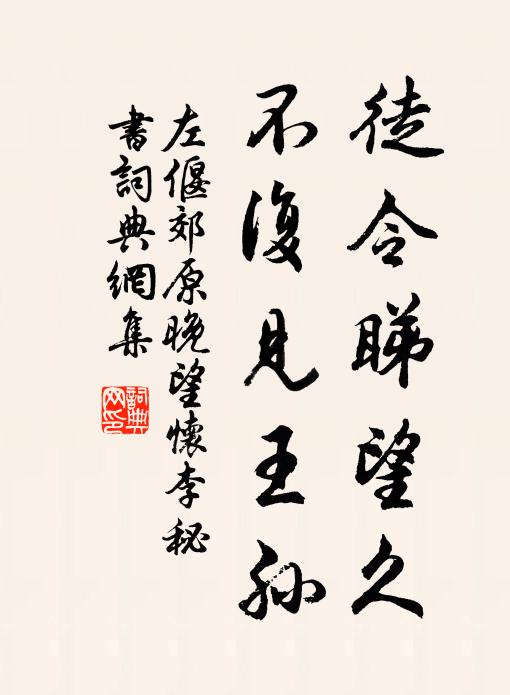 徒令睇望久
不復見王孫
左偃郊原晚望懷李秘
書詞典網集
詞典
网印